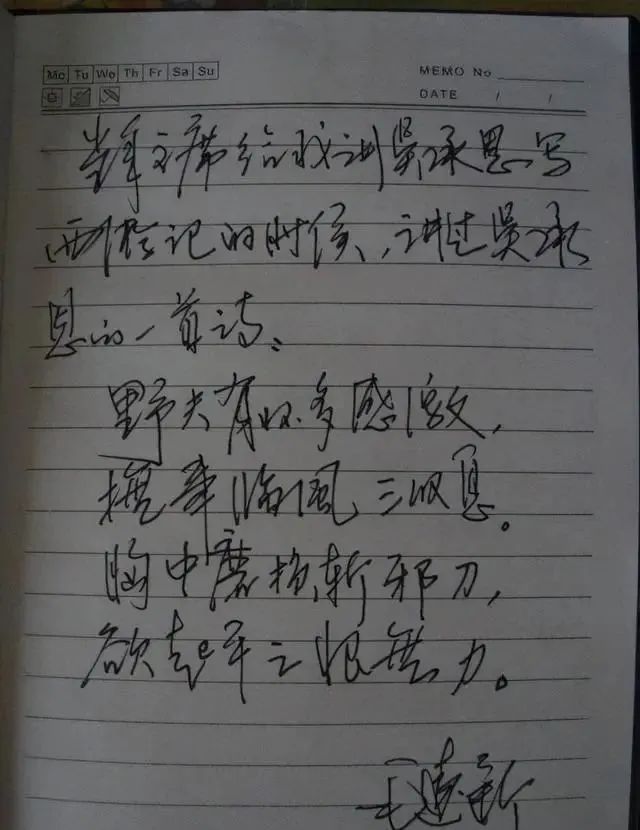 Mo Tu We Th Fr Sa Su
MEMO No
DATE / /
主席给我讲吴承恩写
西游记的时候,讲过吴承
恩的一首诗:
野夫有怀多感激,
抚事临风三叹息。
胸中磨损斩邪刀,
欲起平之恨无力。
毛建新